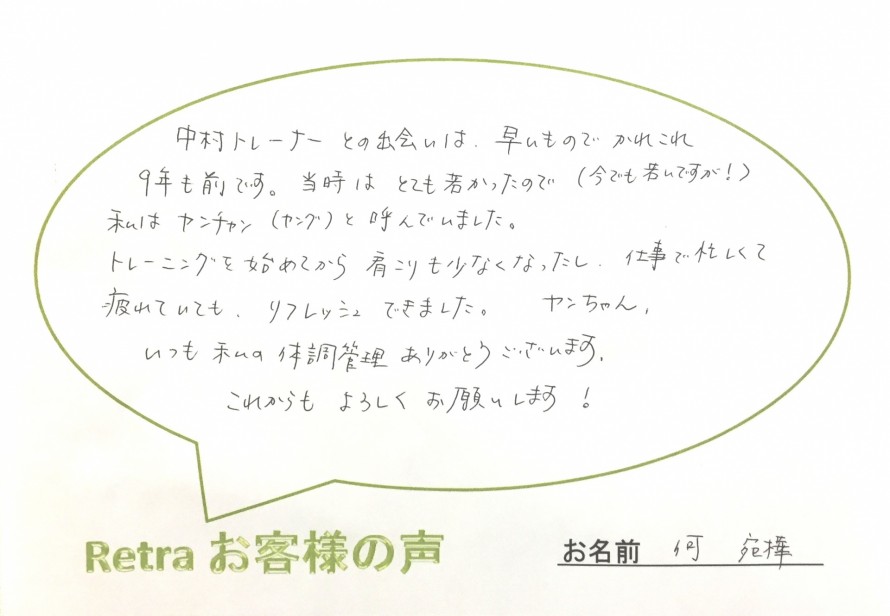 中村トレーナーとの出会いは、早いものでかれこれ
9年も前です。当時はとても若かったので(今でも若いですが！)
私はヤンチャン(ヤング)と呼んでいました。
トレーニングを始めてから肩こりも少なくなったし、仕事で忙しくて
疲れていても、リフレッシュできました。ヤンちゃん、
いつも私の体調管理ありがとうございます。
これからもよろしくお願いします！
Retraお客様の声
お名前 何 宛樺